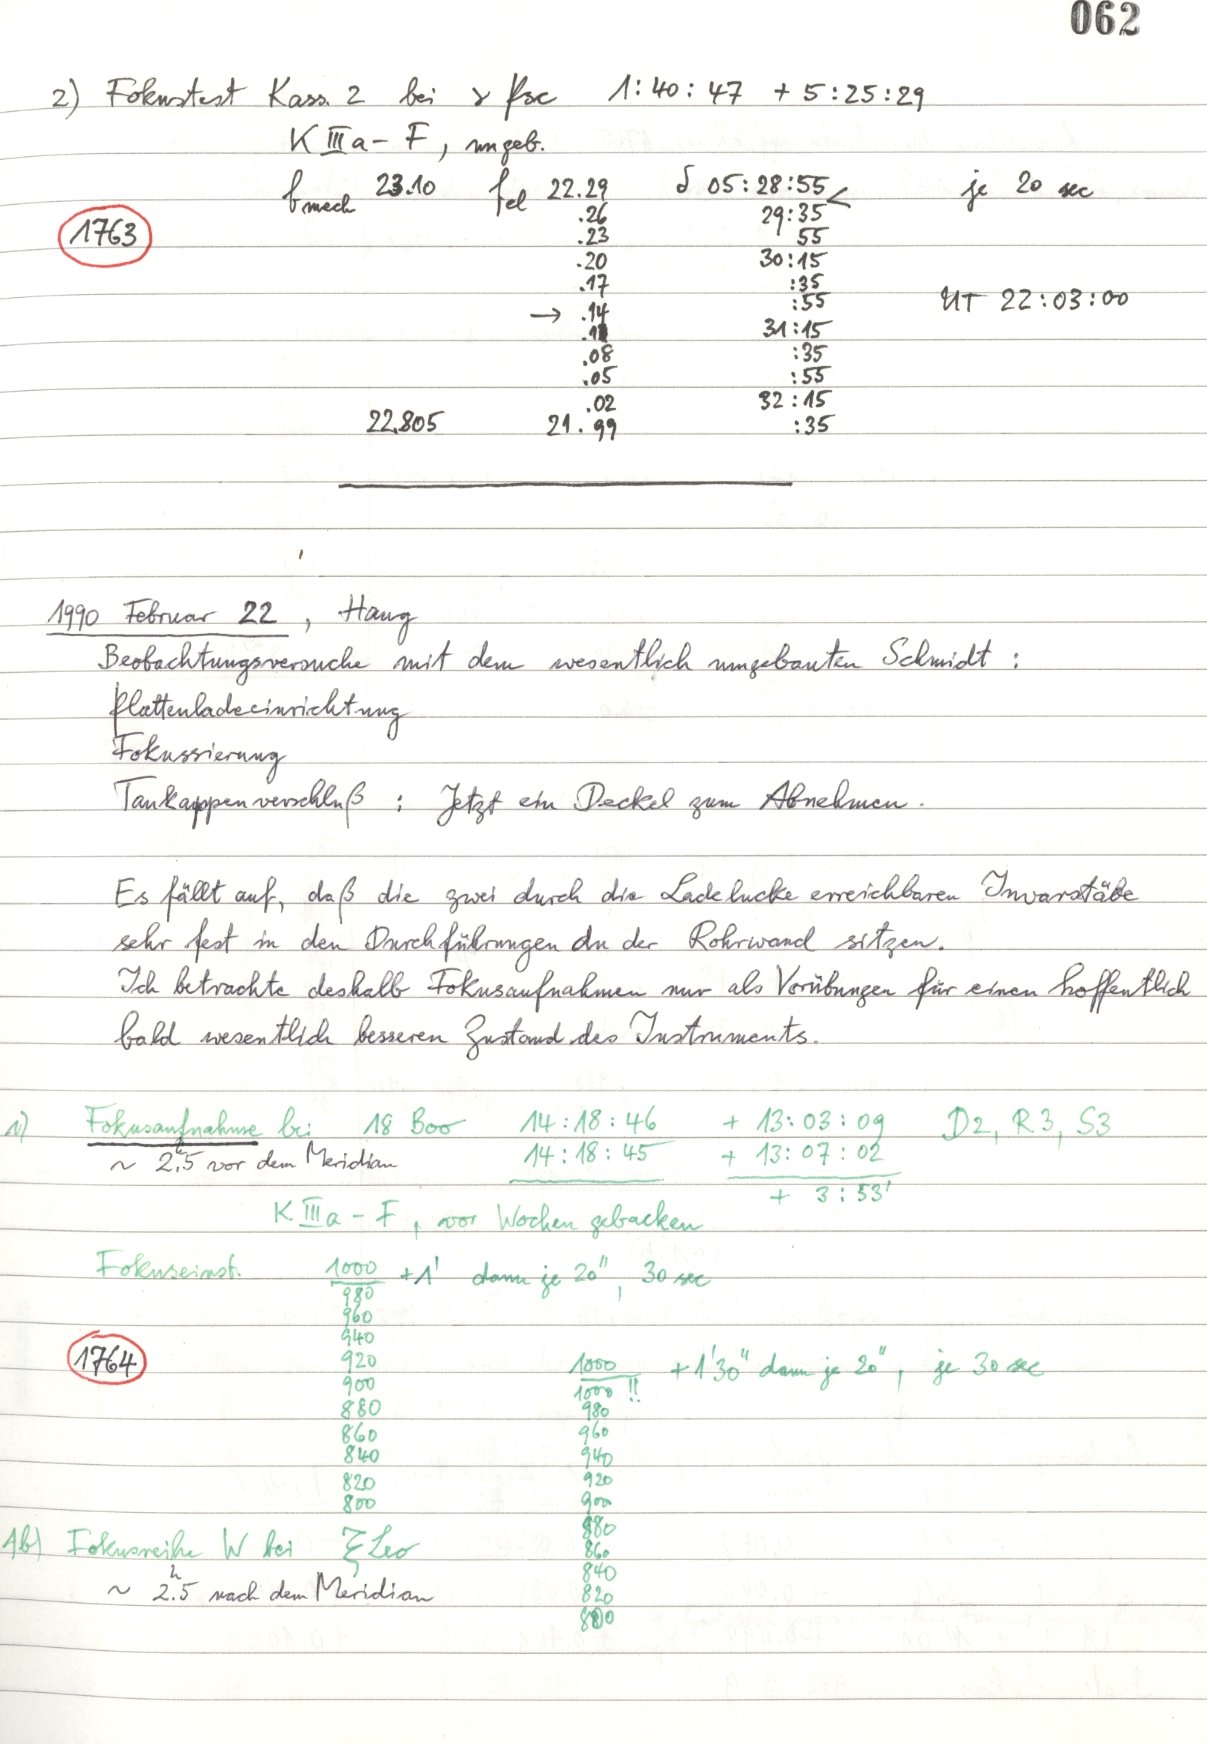 062
2) Fokustest Kass. 2 bei γ Psc 1:40:47 + 5:25:29
K IIIa - F, ungeb.
fmech 23.10 fel 22.29 δ 05:28:55 je 20 sec
.26 29:35
1763 .23 55
.20 30:15
.17 :35
→ .14 :55 UT 22:03:00
.11 31:15
.08 :35
.05 :55
.02 32:15
22.805 21.99 :35
1990 Februar 22, Haug
Beobachtungsversuche mit dem wesentlich umgebauten Schmidt:
Plattenladeeinrichtung
Fokussierung
Tankappenverschluß : Jetzt ein Deckel zum Abnehmen.
Es fällt auf, daß die zwei durch die Ladelucke erreichbaren Invarstäbe
sehr fest in den Durchführungen du der Rohrwand sitzen.
Ich betrachte deshalb Fokusaufnahmen nur als Vorübungen für einen hoffentlich
bald wesentlich besseren Zustand des Instruments.
1) Fokusaufnahme bei 18 Boo 14:18:46 + 13:03:09 D2, R3, S3
~ 2h.5 vor dem Meridian 14:18:45 + 13:07:02
+ 3:53'
K IIIa - F, vor Wochen gebacken
Fokuseinst. 1000 +1' dann je 20", 30 sec
980
960
940
1764 920 1000 +1'30" dann je 20", je 30 sec
900 1000 !!
880 980
860 960
840 940
820 920
800 900
880
1b) Fokusreihe W bei ξ Leo 860
840
~ 2h.5 nach dem Meridian 820
800